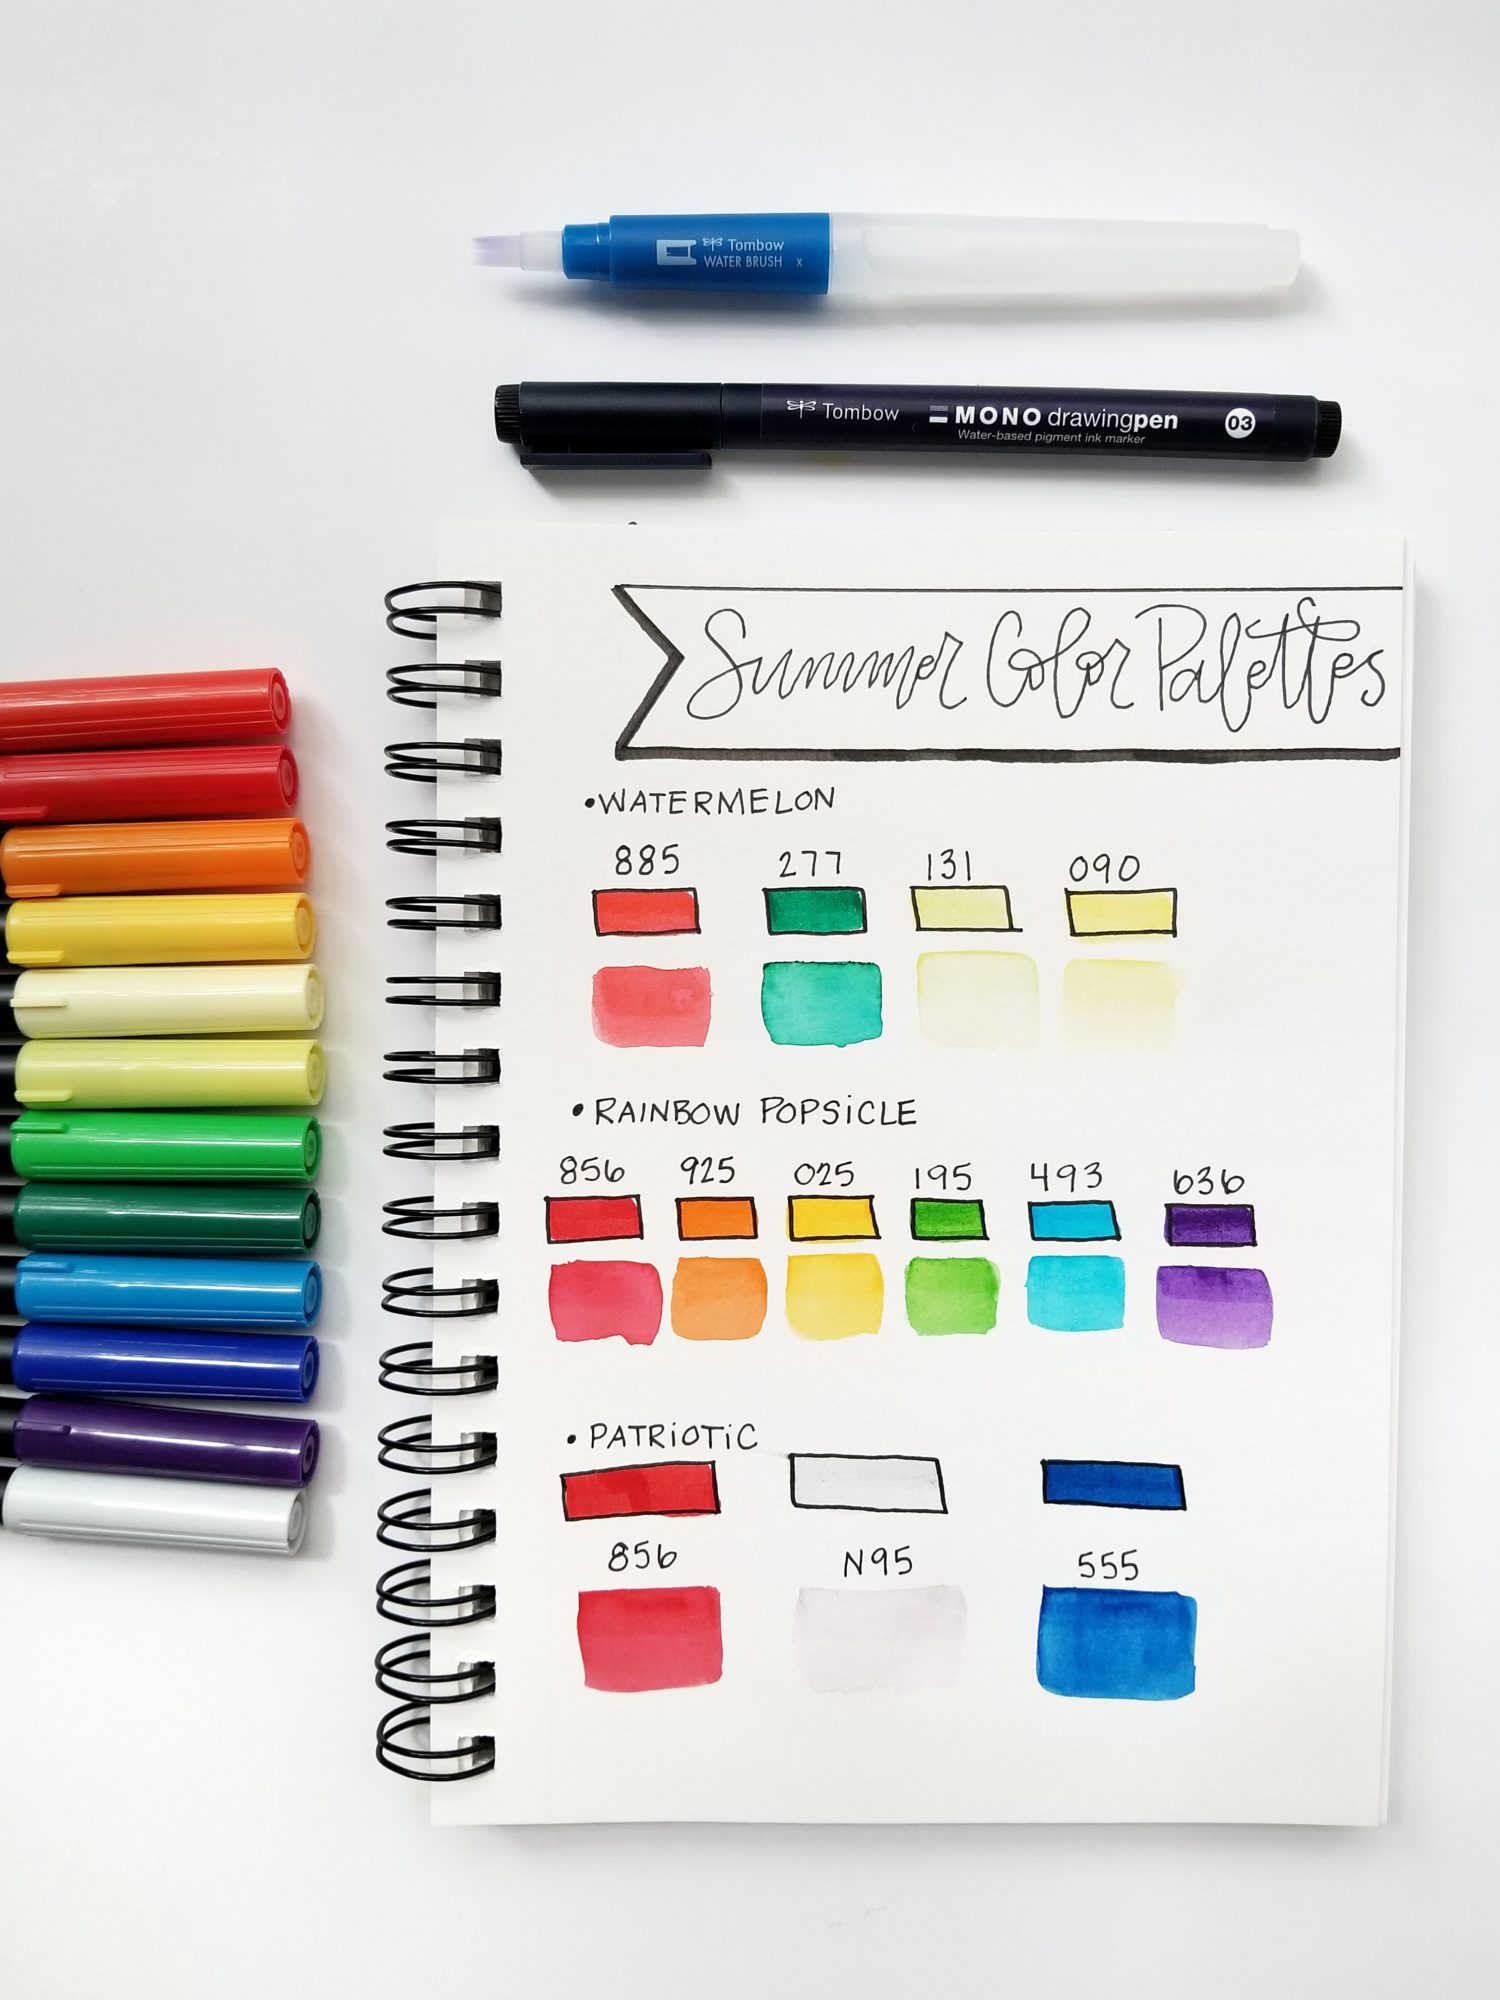 Tombow
WATER BRUSH x
Tombow MONO drawingpen 03
Water-based pigment ink marker
Summer Color Palettes
•WATERMELON
885 277 131 090
•RAINBOW POPSiCLE
856 925 025 195 493 636
•PATRiOTiC
856 N95 555